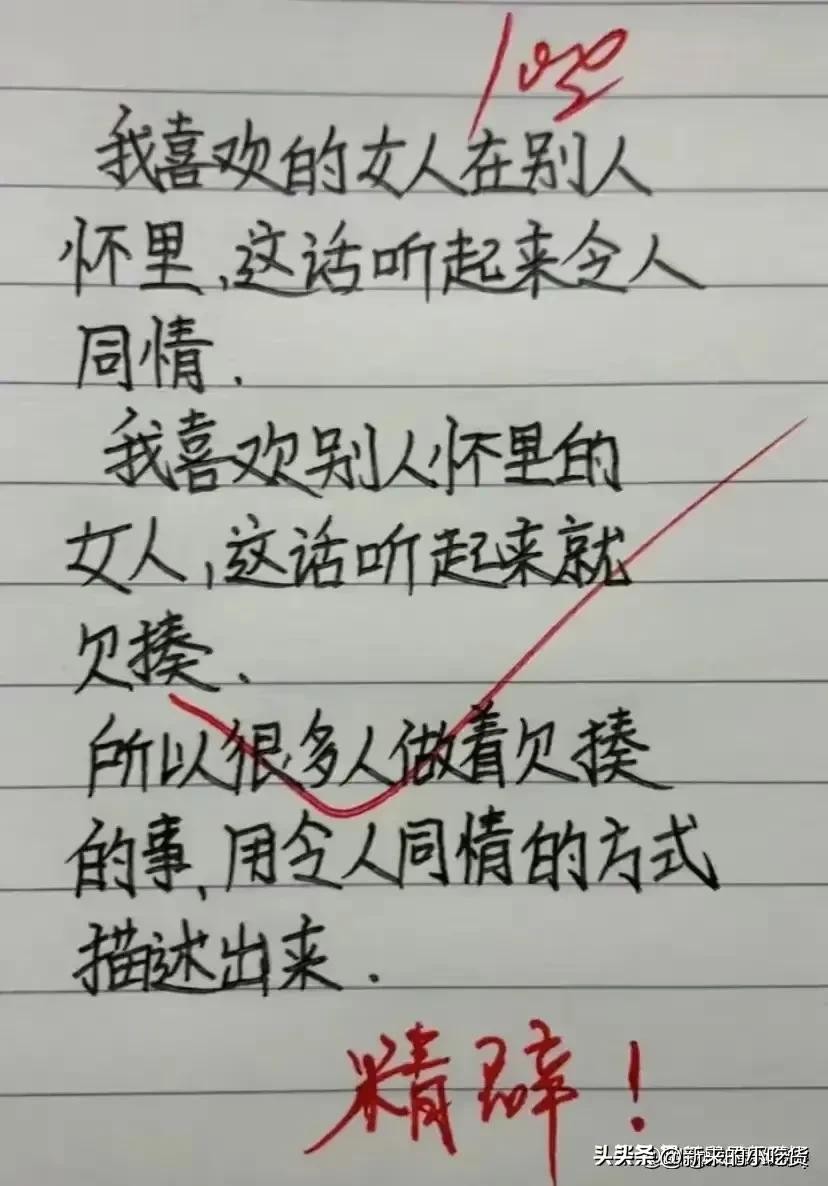 100
我喜欢的女人在别人
怀里,这话听起来令人
同情.
我喜欢别人怀里的
女人,这话听起来就
欠揍.
所以很多人做着欠揍
的事,用令人同情的方式
描述出来.
精辟!
头条@新来的小吃货